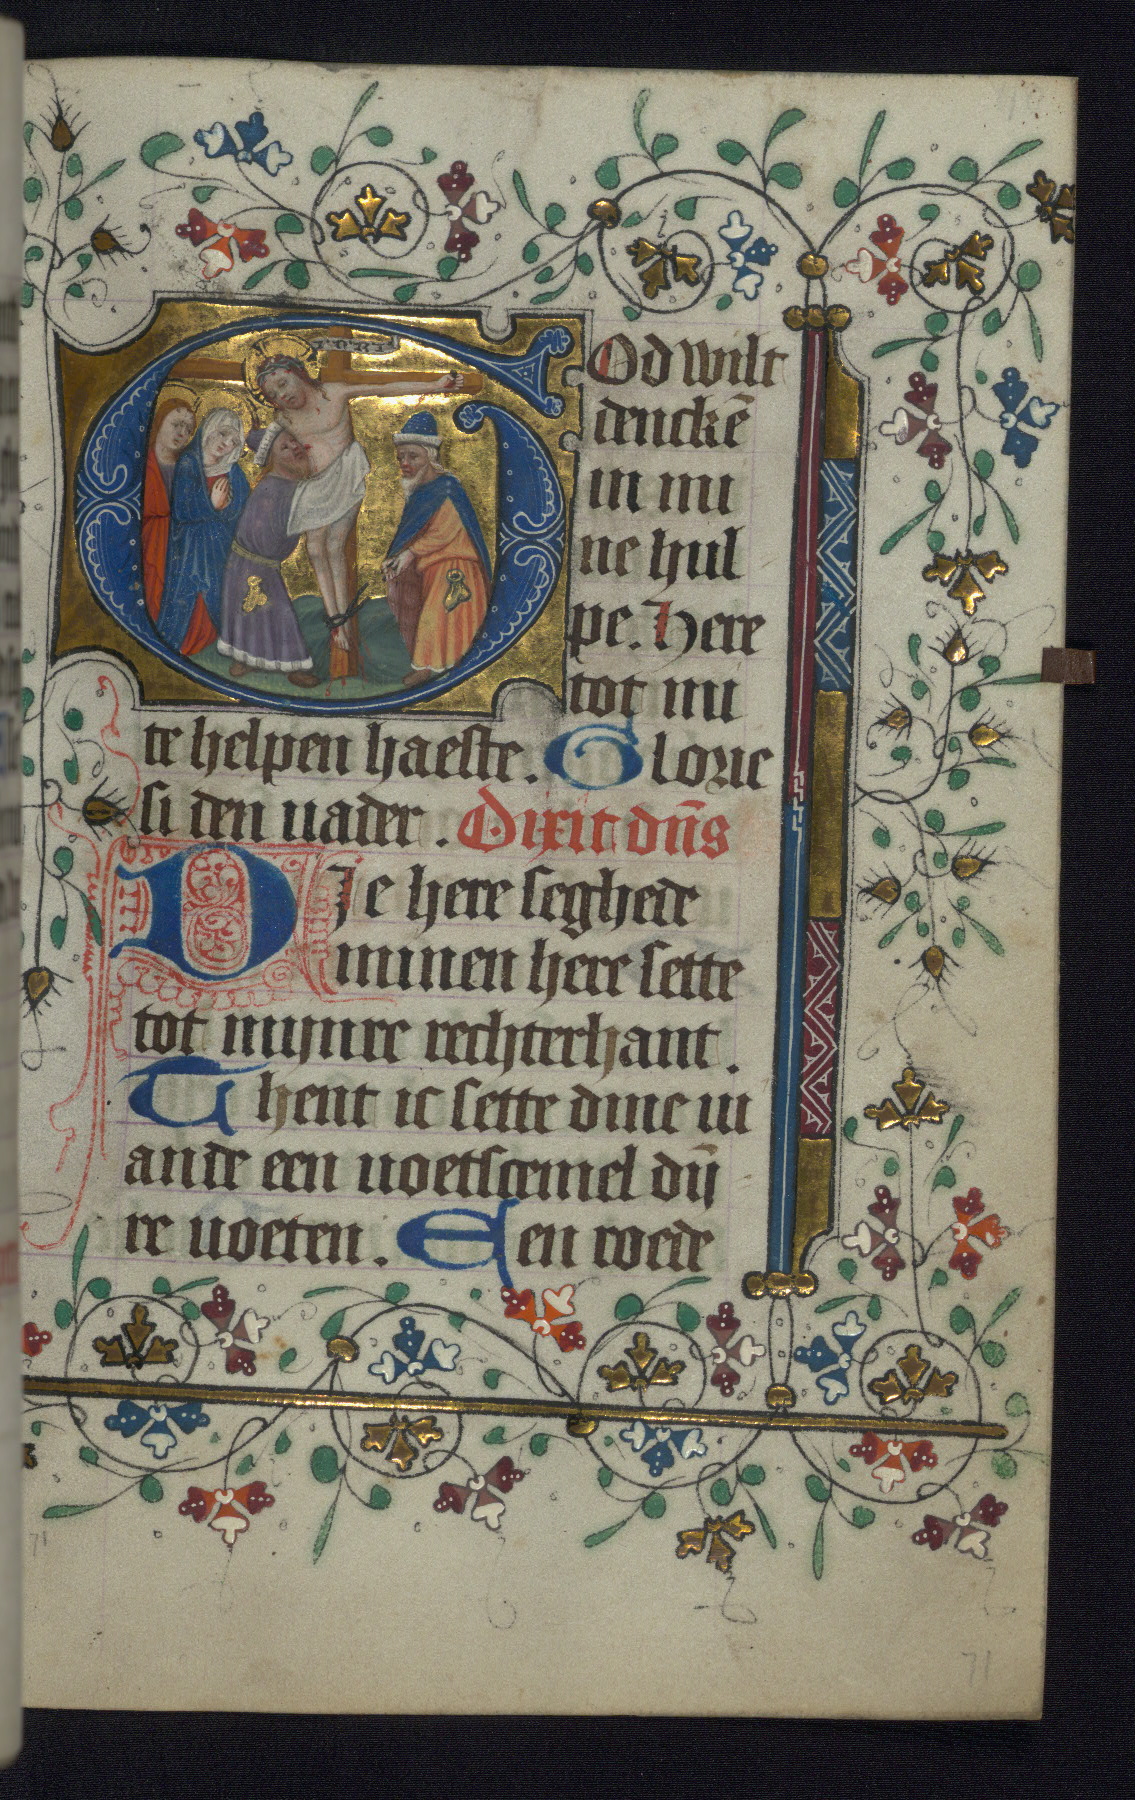 INRI
God wilt
dencke̅
in mi
ne hul
pe. Here
tot mi
te helpen haeste. Glorie
si den uader. Dixit dn̅s
Die here seghede
minen here sette
tot mijnre rechterhant.
Thent ic sette dine ui
ande een uoetscemel dij
re uoeten. Een roede
71
71